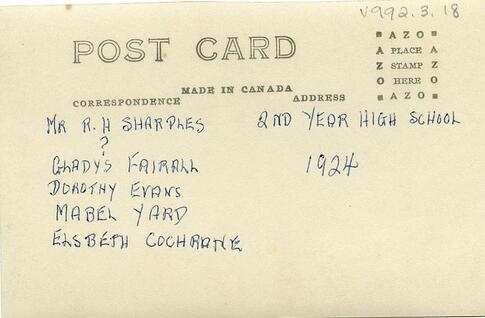 V992.3.18
POST CARD
AZO
A PLACE A
Z STAMP Z
O HERE O
AZO
MADE IN CANADA
CORRESPONDENCE ADDRESS
MR R. H SHARPLES 2ND YEAR HIGH SCHOOL
?
GLADYS FAIRALL 1924
DOROTHY EVANS
MABEL YARD
ELSBETH COCHRANE